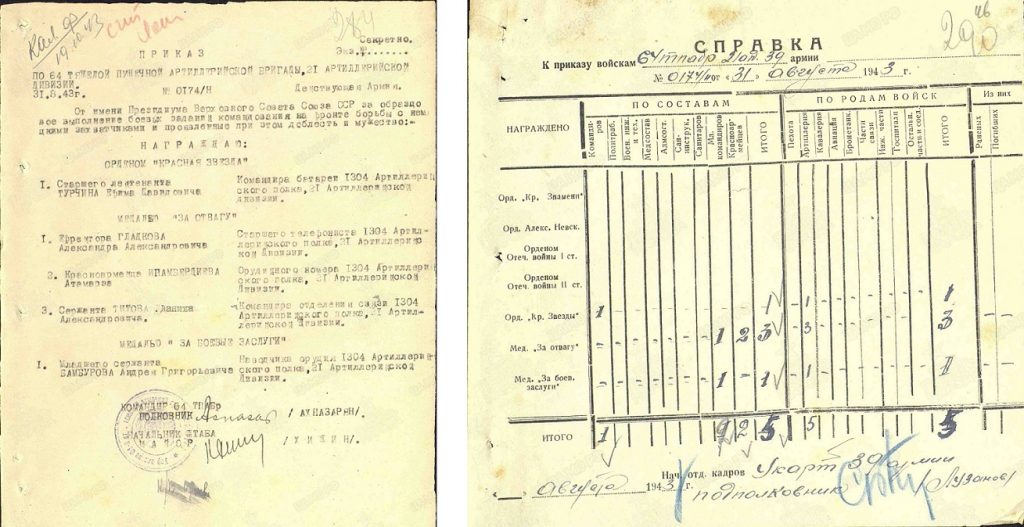 Секретно.
Экз.№
ПРИКАЗ
ПО 64 ТЯЖЕЛОЙ ПУШЕЧНОЙ АРТИЛЛЕРИЙСКОЙ БРИГАДЫ, 21 АРТИЛЛЕРИЙСКОЙ
ДИВИЗИИ.
31.8.43г. № 0174/Н Действующая Армия.
От имени Президиума Верховного Совета Союза ССР за образцо
вое выполнение боевых заданий командования на фронте борьбы с нем
ецкими захватчиками и проявленные при этом доблесть и мужество:-
НАГРАЖДАЮ:
ОРДЕНОМ "КРАСНАЯ ЗВЕЗДА"
1. Старшего лейтенанта Командира батареи 1304 Артиллерий
ТУРЧИНА Ефима Павловича ского полка, 21 Артиллерийской
Дивизии.
МЕДАЛЬЮ "ЗА ОТВАГУ"
1. Ефрейтора ГЛАДКОВА Старшего телефониста 1304 Артил-
Александра Александровича лерийского полка, 21 Артиллерийс
кой Дивизии.
2. Красноармейца Орудийного номера 1304 Артиллерий
ского полка, 21 Артиллерийской
Дивизии.
3. Сержанта ТИТОВА Командира отделения связи 1304
Александровича. Артиллерийского полка, 21 Артил-
лерийской Дивизии.
МЕДАЛЬЮ "ЗА БОЕВЫЕ ЗАСЛУГИ"
1. Младшего сержанта Наводчика орудия 1304 Артиллерий
БАМБУРОВА Андрея Григорьевича ского полка, 21 Артиллерийской
Дивизии.
КОМАНДИР 64 ТПАБр
ПОЛКОВНИК /АХНАЗАРЯН/.
НАЧАЛЬНИК ШТАБА
МАЙОР /ХИЖИН/.
290
СПРАВКА
К приказу войскам 64 тпабр 21 ап. 39 армии
№ 0174/н от "31" Августа 1943 г.
НАГРАЖДЕНО ПО СОСТАВАМ ПО РОДАМ ВОЙСК Из них
Команди-ров Политраб. Воен. инж. и тех. Медсостав Админст. Сан-инструк. Санитаров Мл. командиров Красноар-мейцев ИТОГО Пехота Артиллерия Кавалерия Авиация Бронетанк. Части связи Инж. части Госпитали Остальн. части и соед. ИТОГО Раненых Погибших
Орд. „Кр. Знамени"
Орд. Алекс. Невск.
Орденом Отеч. войны I ст.
Орденом Отеч. войны II ст.
Орд. „Кр. Звезды" 1 1 1 1
Мед. „За отвагу" 1 2 3 3 3
Мед. „За боев. заслуги" 1 1 1 1
ИТОГО 1 2 2 5 5 5
Нач. отд. кадров Укарт 39 армии
Августа 1943 г. подполковник